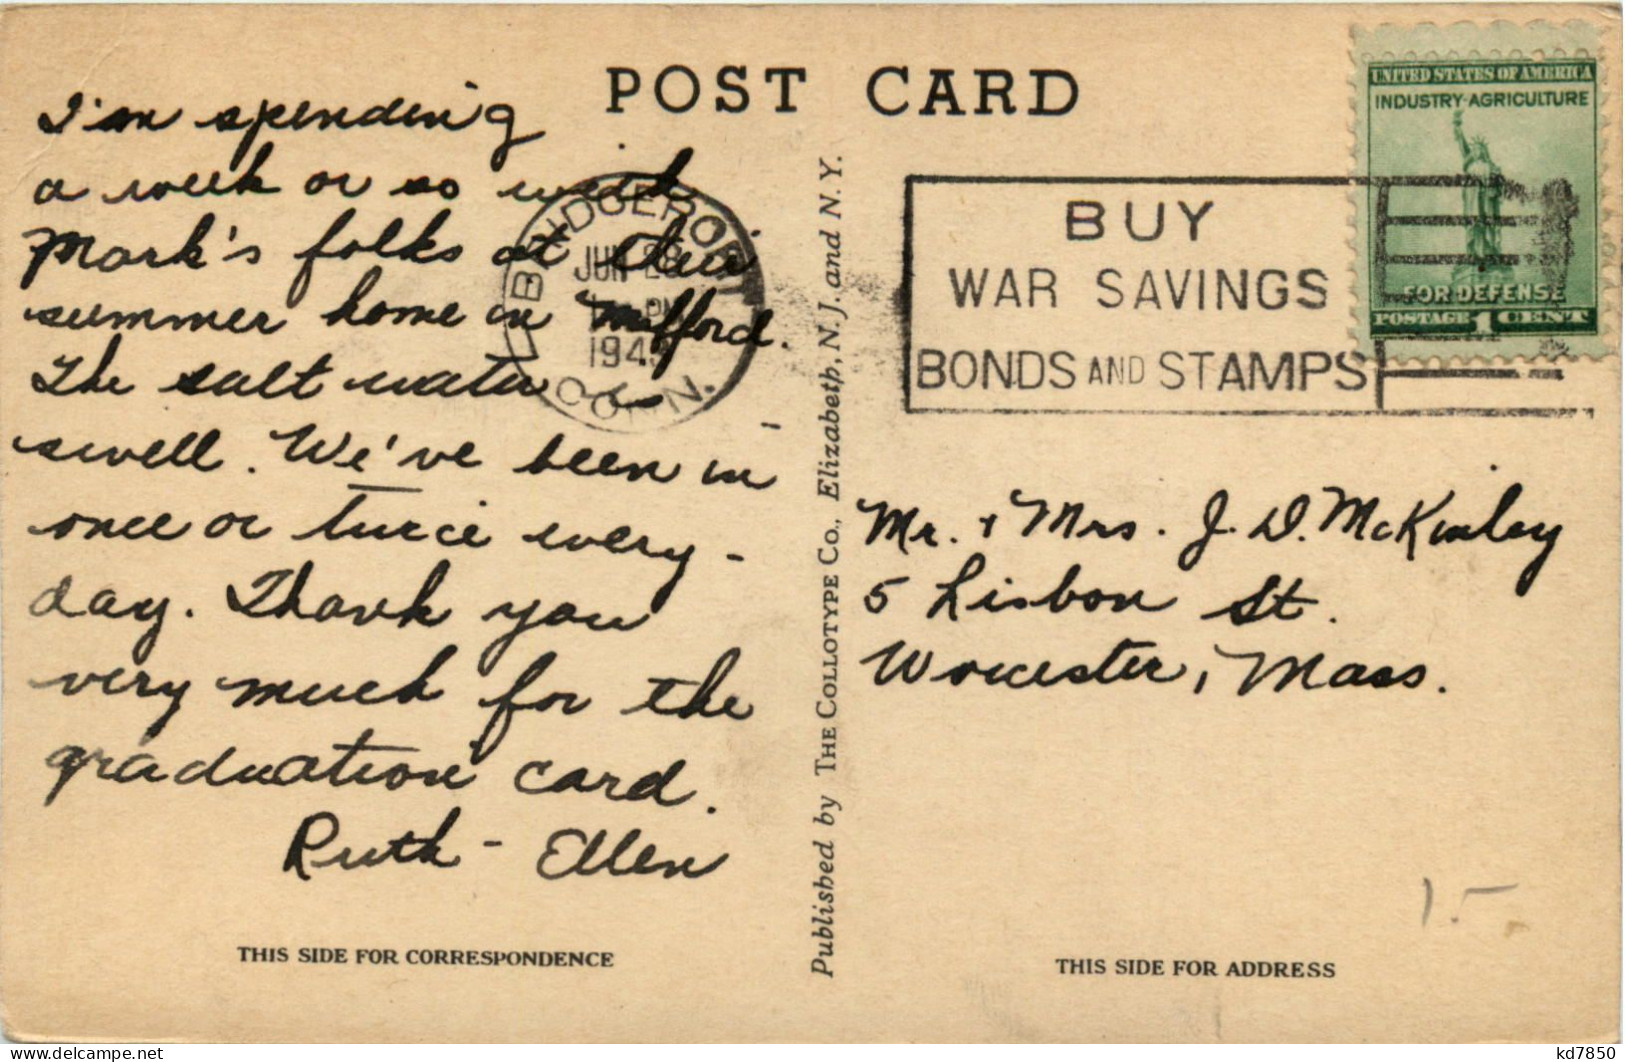 POST CARD
I'm spending
a week or so with
Mark's folks at their
summer home in Milford.
The salt water is
swell. We've been in
once or twice every-
day. Thank you
very much for the
graduation card.
Ruth-Ellen
THIS SIDE FOR CORRESPONDENCE
BRIDGEPORT
JUN 28
PM
CONN.
Published by THE COLLOTYPE Co., Elizabeth, N. J. and N. Y.
BUY
WAR SAVINGS
BONDS AND STAMPS
UNITED STATES OF AMERICA
INDUSTRY·AGRICULTURE
FOR DEFENSE
POSTAGE 1 CENT
Mr. + Mrs. J. D. McKinley
5 Lisbon St.
Worcester, Mass.
1.-
THIS SIDE FOR ADDRESS
delcampe.net
kd7850